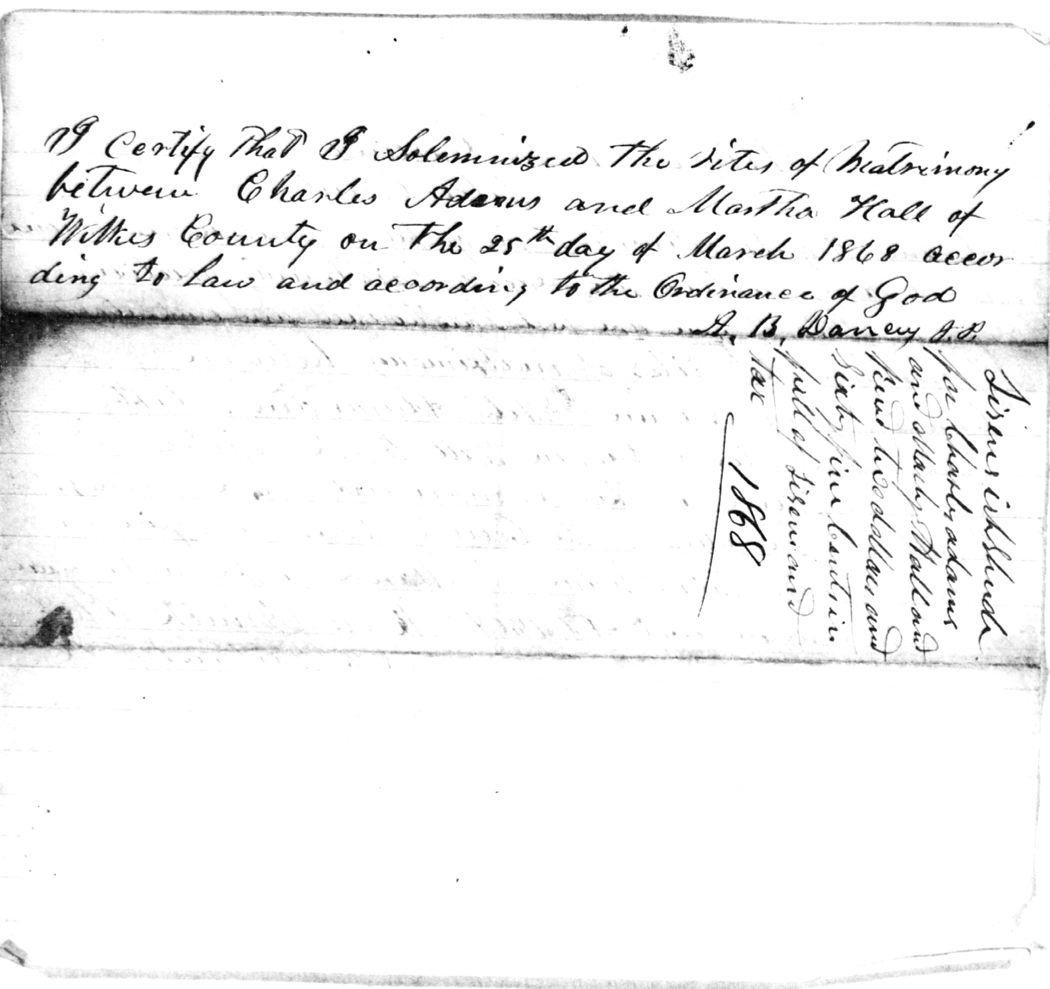 I Certify That I Solemnized The rites of Matrimony
between Charles Adams and Martha Hall of
Wilkes County on The 25th day of March 1868 accor
ding to law and according to the Ordinance of God
A. B. Dancy J. P.
for Charly adams
and Hall and
two dollars and
Sixty five Cents in
full of Lisens and
tax
1868